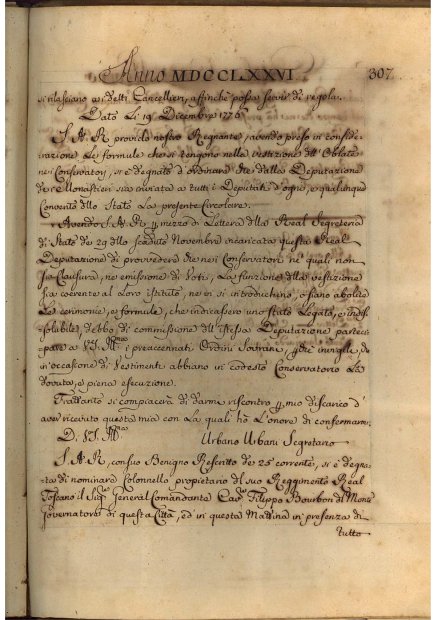 Anno MDCCLXXVI. 307.
si rilasciano a i detti Cancellieri, affinchè possa servir di regola.
Dato Li 19 Dicembre 1776
S. A. R. provido nostro Regnante, avendo preso in conside-
razione Le formule che si tengono nella vestizione dell'Oblate
nei Conservatorj, si è degnato d'ordinare che dalla Deputazione
de Monasteri sia inviata a tutti i Deputati d'ogni, e qualunque
Convento dello Stato La presente Circolare.
Avendo S. A. R. p mezzo di Lettera della Real Segreteria
di Stato de 29 dello scaduto Novembre incaricata questa Real
Deputazione di provvedere che nei Conservatorj ne quali non
sia Clausura, ne emissione di Voti, La funzione della vestizione
sia coerente al Loro istituto, ne vi si introduchino, o siano abolite
Le cerimonie, e formule, che indicassero uno stato Legato, e indis-
solubile, debbo di commissione dell'istessa Deputazione parteci-
pare a VS. Ill.ma i preaccennati Ordini Sovrani, invigili, che
in occasione di Vestimenti abbiano in codesto Conservatorio La
dovuta, e piena esecuzione.
Frattanto si compiacerà di darmi riscontro p mio discarico d'
aver ricevuto questa mia con La quale hò L'onore di confermarmi
D. VS. Ill.ma Urbano Urbani Segretario
S. A. R. con suo Benigno Rescritto de 25 corrente, si è degna-
ta di nominare Colonnello proprietario del suo Reggimento Real
Toscano il Sig.re General Comandante Cav.re Filippo Bourbon del Monte
Governatore di questa Città, ed in questa Mattina in presenza di
tutto